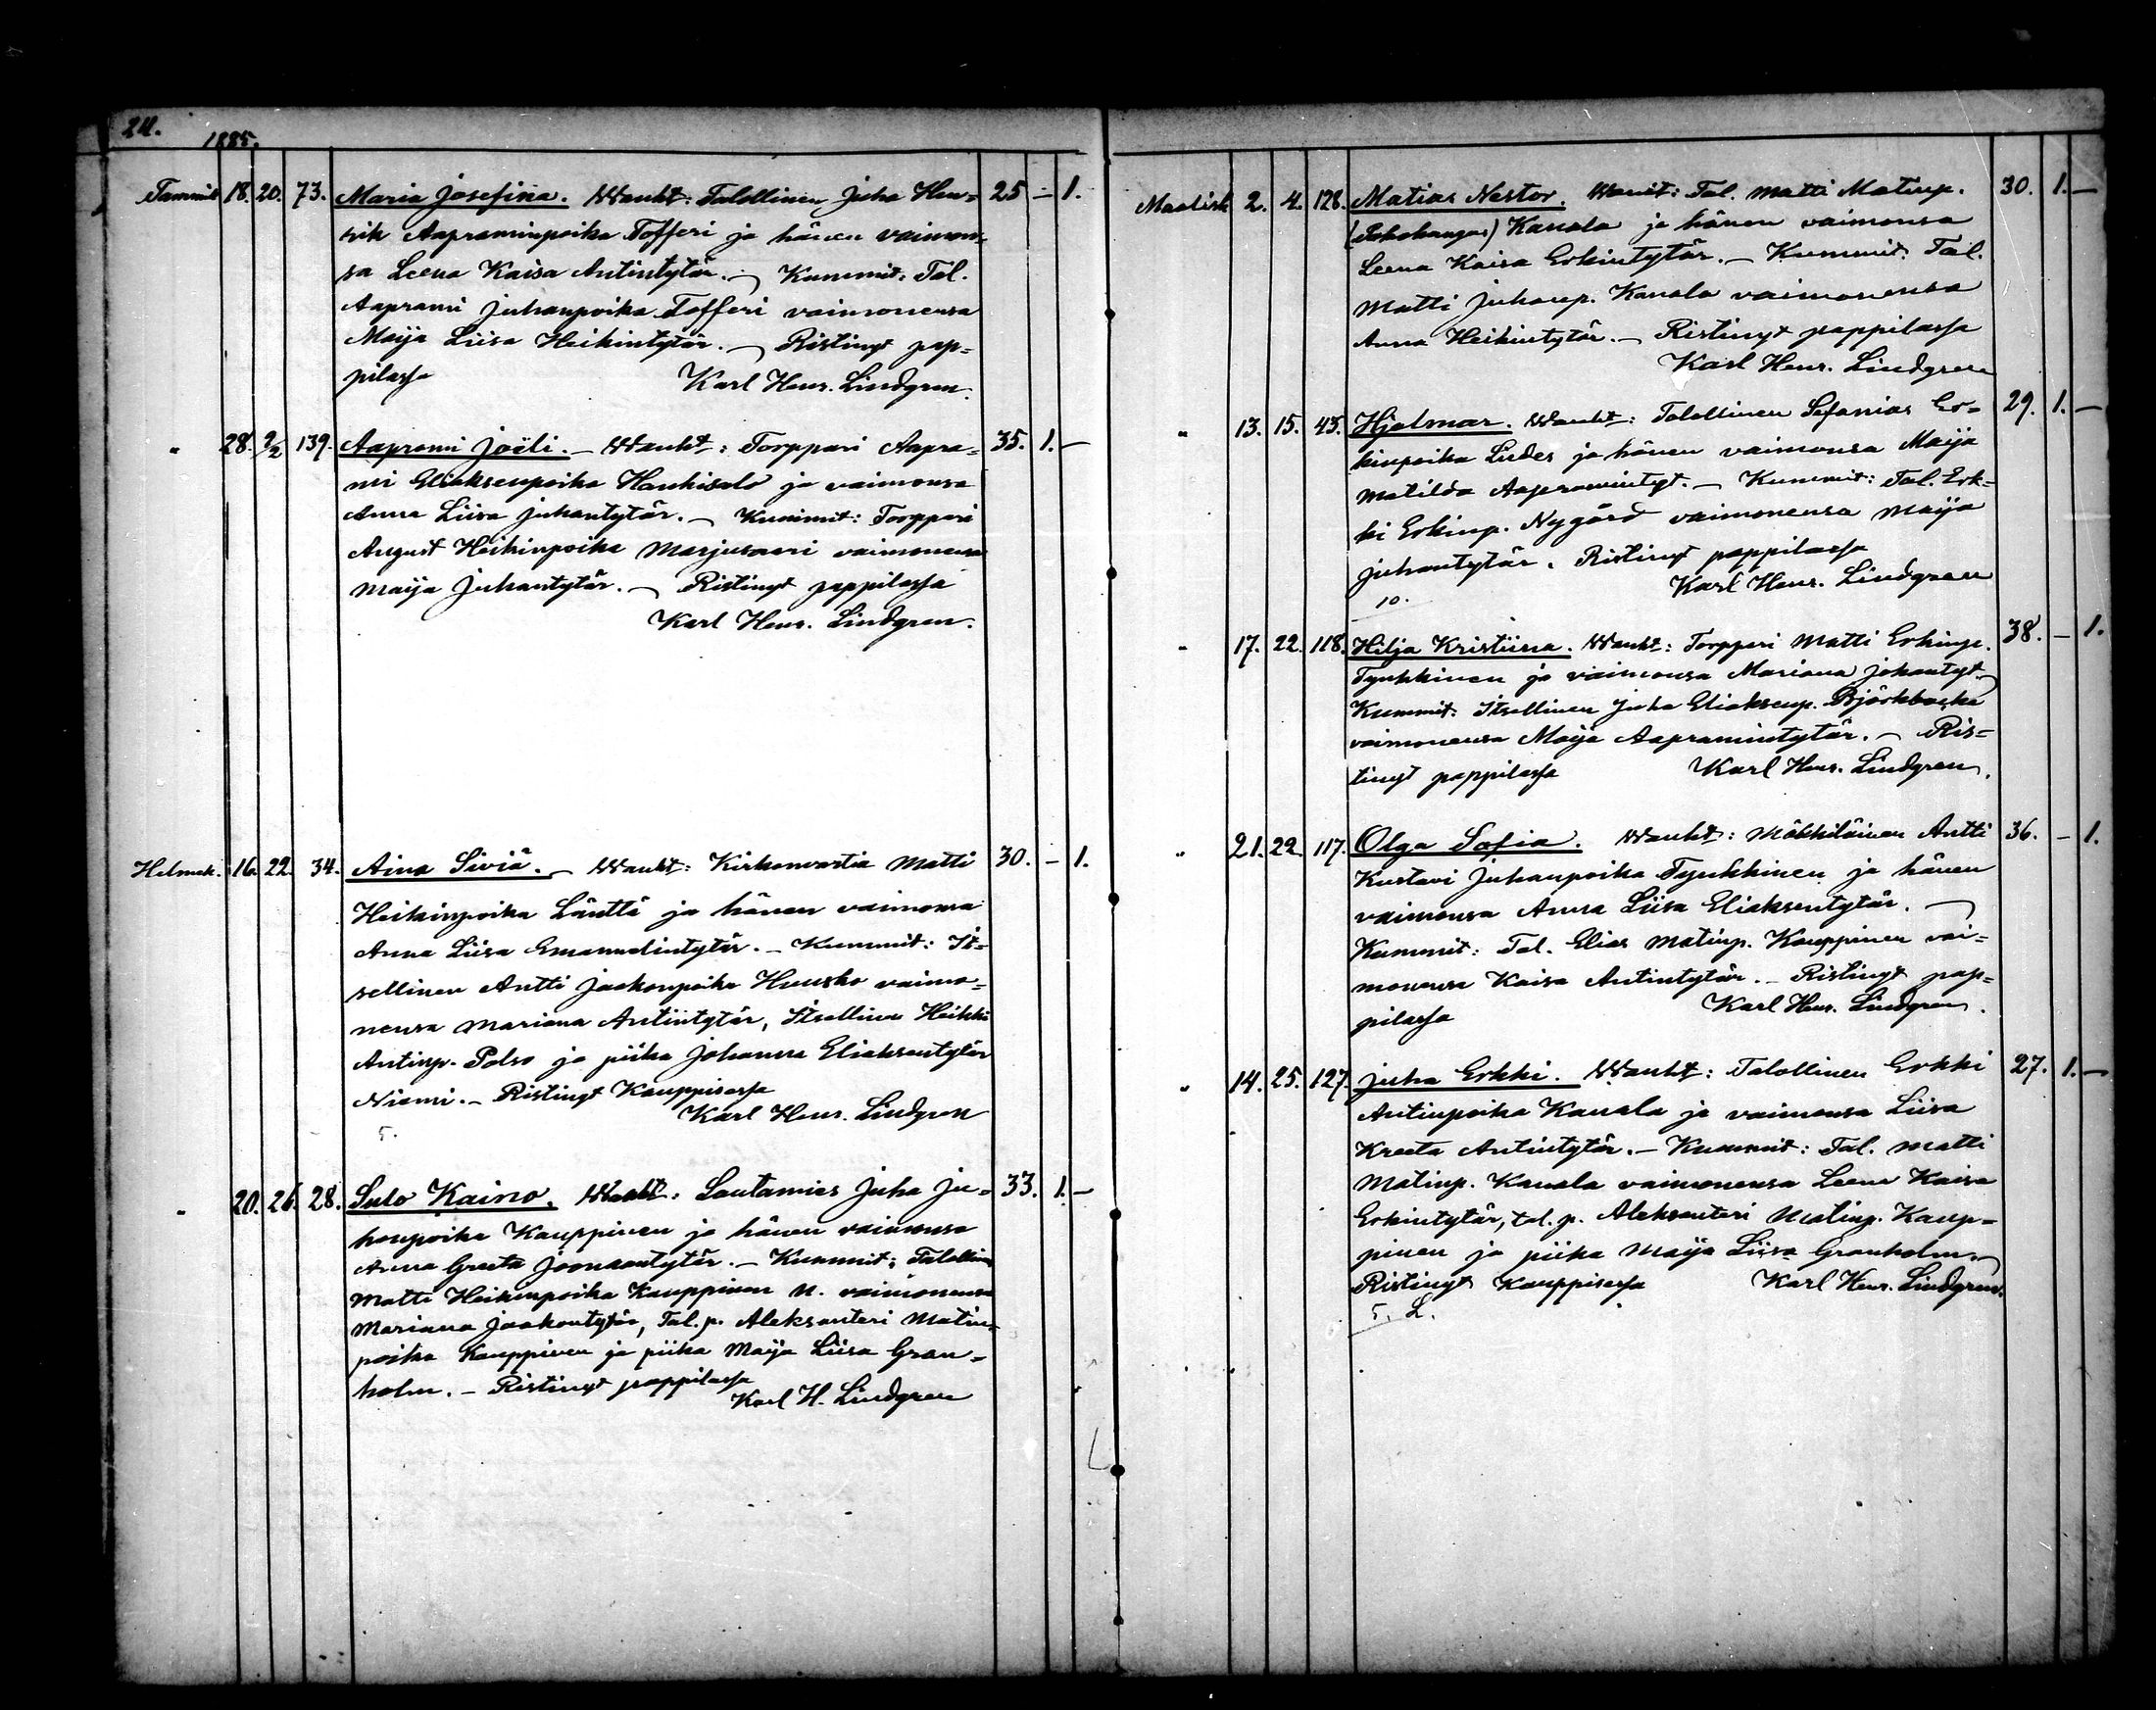 24.
1885.
Tammik 18. 20. 73. Maria Josefina. Wanht: Talollinen Juha Hen- 25 — 1.
rik Aapraminpoika Tofferi ja hänen vaimon-
sa Leena Kaisa Antintytär. — Kummit: Tal.
Aaprami Juhanpoika Tofferi vaimonensa
Maija Liisa Heikintytär. — Ristinyt pap-
pilassa Karl Henr. Lindgren.
" 28. 2/2 139. Aaprami Joëli. — Wanht: Torppari Aapra- 35. 1. —
mi Eliaksenpoika Hankisalo ja vaimonsa
Anna Liisa Juhantytär. — Kummit: Torppari
August Heikinpoika Marjusaari vaimonensa
Maija Juhantytär. — Ristinyt pappilassa
Karl Henr. Lindgren.
Helmik. 16. 22. 34. Aina Siviä. — Wanht: Kirkonvartia Matti 30. — 1.
Heikinpoika Länttä ja hänen vaimonsa
Anna Liisa Emanuelintytär. — Kummit: It-
sellinen Antti Jaakonpoika Huusko vaimo-
nensa Mariana Antintytär, Itsellinen Heikki
Antinp. Polso ja piika Johanna Eliaksentytär
Niemi. — Ristinyt Kauppisessa
Karl Henr. Lindgren
5.
" 20. 26. 28. Sulo Kaino. Wanht: Lautamies Juha Ju- 33. 1. —
hanpoika Kauppinen ja hänen vaimonsa
Anna Greeta Joonaantytär. — Kummit: Talollinen
Matti Heikinpoika Kauppinen N. vaimonensa
Mariana Jaakontytär, Tal. p. Aleksanteri Matin-
poika Kauppinen ja piika Maija Liisa Gran-
holm. — Ristinyt pappilassa
Karl H. Lindgren
Maalisk 2. 4. 128. Matias Nestor. Wanht: Tal. Matti Matinp. 30. 1. —
Kanala ja hänen vaimonsa
Leena Kaisa Erkintytär. — Kummit: Tal.
Matti Juhanp. Kanala vaimonensa
Anna Heikintytär. — Ristinyt pappilassa
Karl Henr. Lindgren
" 13. 15. 43. Hjalmar. Wanht: Talollinen Sefanias Er- 29. 1. —
kinpoika Lindes ja hänen vaimonsa Maija
Matilda Aapramintyt. — Kummit: Tal. Erk-
ki Erkinp. Nygård vaimonensa Maija
Juhantytär. Ristinyt pappilassa
Karl Henr. Lindgren
10.
" 17. 22. 118. Hilja Kristiina. Wanht: Torppari Matti Erkinp. 38. — 1.
Tynkkinen ja vaimonsa Mariana Johantyt. —
Kummit: Itsellinen Juha Eliaksenp. Björkbacka
vaimonensa Maija Aapramintytär. — Ris-
tinyt pappilassa Karl Henr. Lindgren.
" 21. 22. 117. Olga Sofia. Wanht: Mökkiläinen Antti 36. — 1.
Kustavi Juhanpoika Tynkkinen ja hänen
vaimonsa Anna Liisa Eliaksentytär. —
Kummit: Tal. Elias Matinp. Kauppinen vai-
monensa Kaisa Antintytär. — Ristinyt pap-
pilassa Karl Henr. Lindgren.
" 14. 25. 127. Juha Erkki. Wanht: Talollinen Erkki 27. 1. —
Antinpoika Kanala ja vaimonsa Liisa
Kreeta Antintytär. — Kummit: Tal. Matti
Matinp. Kanala vaimonensa Leena Kaisa
Erkintytär, tal. p. Aleksanteri Matinp. Kaup-
pinen ja piika Maija Liisa Granholm. —
Ristinyt Kauppisessa Karl Henr. Lindgren.
5. L.